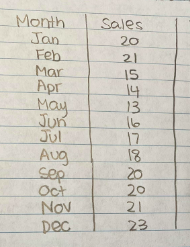 Month Sales
Jan 20
Feb 21
Mar 15
Apr 14
May 13
Jun 16
Jul 17
Aug 18
Sep 20
Oct 20
Nov 21
Dec 23